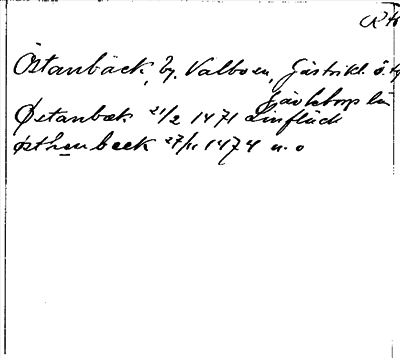 Östanbäck, by, Valbo sn, Gästrikl. ö. tg
Gävleborgs län
Østanbæk 21/2 1471 Linflück
østhenbeck 27/11 1474 u. o